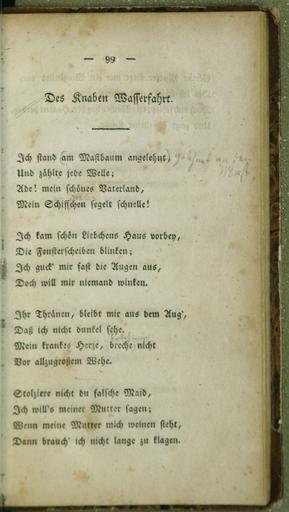 — 99 —
Des Knaben Wasserfahrt.
Ich stand am Mastbaum angelehnt,
Und zählte jede Welle;
Ade! mein schönes Vaterland,
Mein Schiffchen segelt schnelle!
Ich kam schön Liebchens Haus vorbey,
Die Fensterscheiben blinken;
Ich guck' mir fast die Augen aus,
Doch will mir niemand winken.
Ihr Thränen, bleibt mir aus dem Aug',
Daß ich nicht dunkel sehe.
Mein krankes Herze, breche nicht
Vor allzugroßem Wehe.
Stolziere nicht du falsche Maid,
Ich will's meiner Mutter sagen;
Wenn meine Mutter mich weinen sieht,
Dann brauch' ich nicht lange zu klagen.